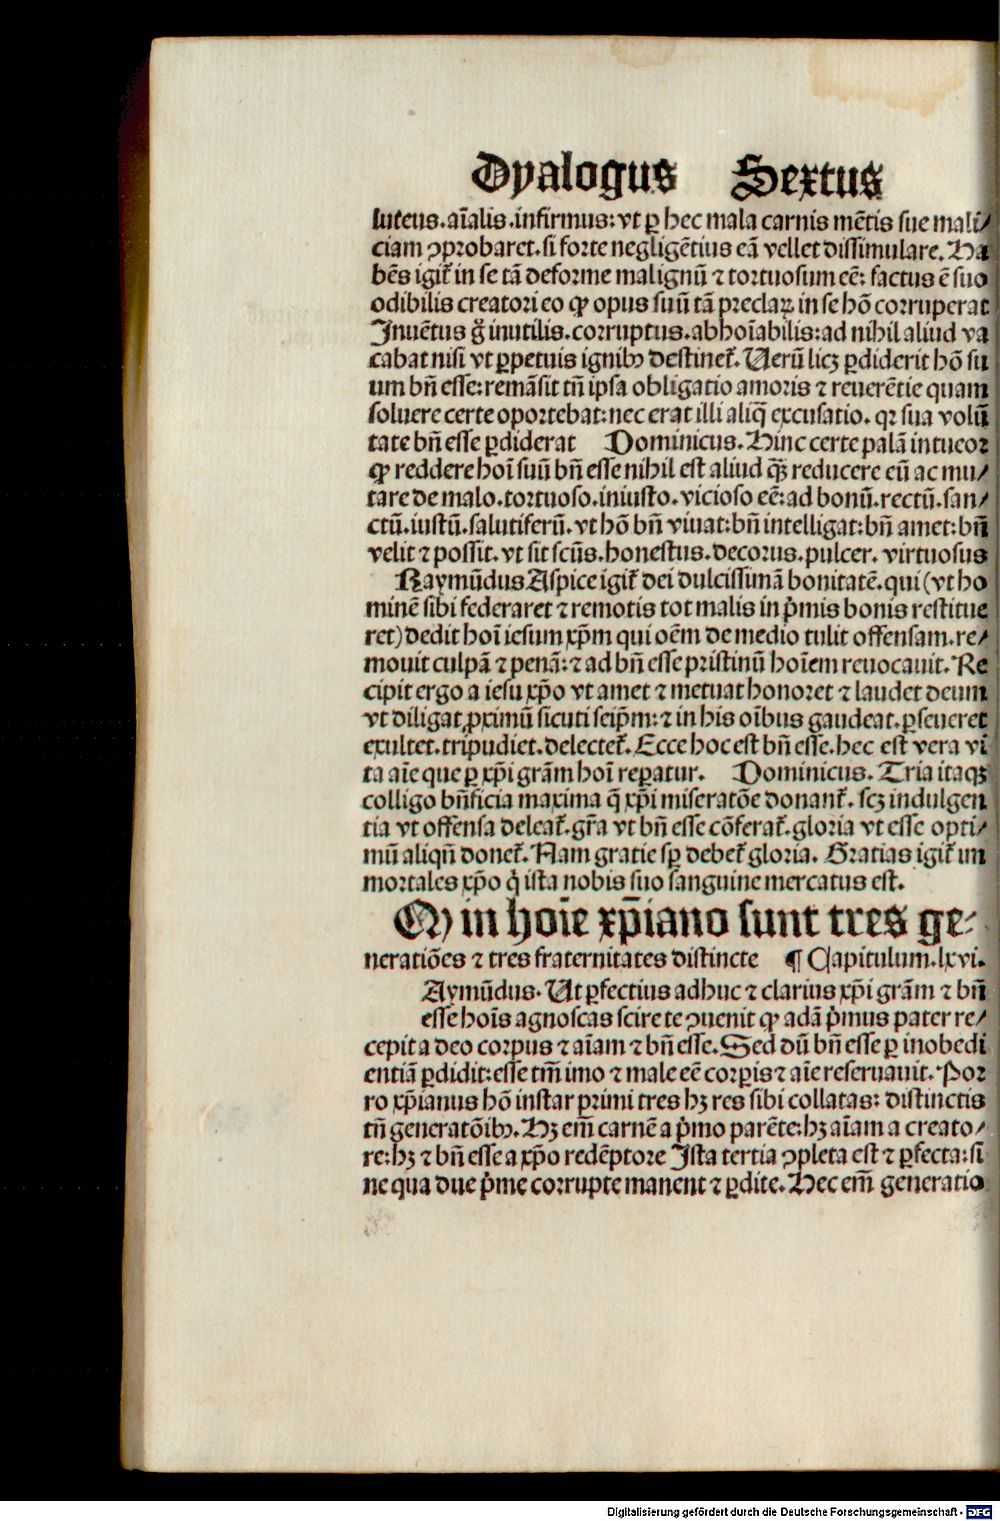 Dyalogus Sextus
luteus.aīalis.infirmus:vt ꝑ hec mala carnis mētis sue mali/
ciam ꝓprobaret.si forte negligētius eā vellet dissimulare. Ha
bēs igit̃ in se tā deforme malignū ⁊ tortuosum eē: factus ē suo
odibilis creatori eo ꝙ opus suū tā preclaꝝ in se hō corruperat
Inuētus g̊ inutilis.corruptus.abhoīabilis:ad nihil aliud va
cabat nisi vt ꝑpetuis ignibꝰ destinet̃. Uerū licꝫ ꝑdiderit hō su
um bn̄ esse:remāsit tn̄ ipsa obligatio amoris ⁊ reuerētie quam
soluere certe oportebat:nec erat illi aliq̄ excusatio. qꝛ sua volū
tate bn̄ esse ꝑdiderat Dominicus. Hinc certe palā intueor
ꝙ reddere hoī suū bn̄ esse nihil est aliud q̄ꝫ reducere eū ac mu/
tare de malo.tortuoso.iniusto.vicioso eē:ad bonū.rectū.san/
ctū.iustū.salutiferū.vt hō bn̄ viuat:bn̄ intelligat:bn̄ amet:bn̄
velit ⁊ possit.vt sit scūs.honestus.decorus.pulcer. virtuosus
Raymūdus Aspice igit̃ dei dulcissimā bonitatē.qui (vt ho
minē sibi federaret ⁊ remotis tot malis in p̓mis bonis restitue
ret) dedit hoī iesum xp̄m qui oēm de medio tulit offensam.re/
mouit culpā ⁊ penā:⁊ ad bn̄ esse pristinū hoīem reuocauit. Re
cipit ergo a iesu xp̄o vt amet ⁊ metuat honoret ⁊ laudet deum
vt diligat ꝓximū sicuti seip̄m:⁊ in his oībus gaudeat.ꝑseueret
exultet.tripudiet.delectet̃. Ecce hoc est bn̄ esse.hec est vera vi
ta aīe que ꝑ xp̄i grām hoī reꝑatur. Dominicus. Tria itaqꝫ
colligo bn̄ficia maxima q̄ xp̄i miseratōe donant̃. scꝫ indulgen
tia vt offensa deleat̃.gr̄a vt bn̄ esse cōferat̃.gloria vt esse opti/
mū aliqn̄ donet̃. Nam gratie sꝑ debet̃ gloria. Gratias igit̃ im
mortales xp̄o q̓ ista nobis suo sanguine mercatus est.
Ꝙ in hoīe xp̄iano sunt tres ge-
neratiōes ⁊ tres fraternitates distincte ¶ Capitulum.lxvi.
Aymūdus. Ut ꝑfectius adhuc ⁊ clarius xp̄i grām ⁊ bn̄
esse hoīs agnoscas scire te ꝯuenit ꝙ adā p̓mus pater re/
cepit a deo corpus ⁊ aīam ⁊ bn̄ esse. Sed dū bn̄ esse ꝑ inobedi
entiā ꝑdidit:esse tm̄ imo ⁊ male eē corꝑis ⁊ aīe reseruauit. Por
ro xp̄ianus hō instar primi tres hꝫ res sibi collatas: distinctis
tn̄ generatōibꝰ. Hꝫ em̄ carnē a p̓mo parēte:hꝫ aīam a creato/
re:hꝫ ⁊ bn̄ esse a xp̄o redēptore Ista tertia ꝯpleta est ⁊ ꝑfecta:si
ne qua due p̓me corrupte manent ⁊ ꝑdite. Hec em̄ generatio
Digitalisierung gefördert durch die Deutsche Forschungsgemeinschaft - DFG